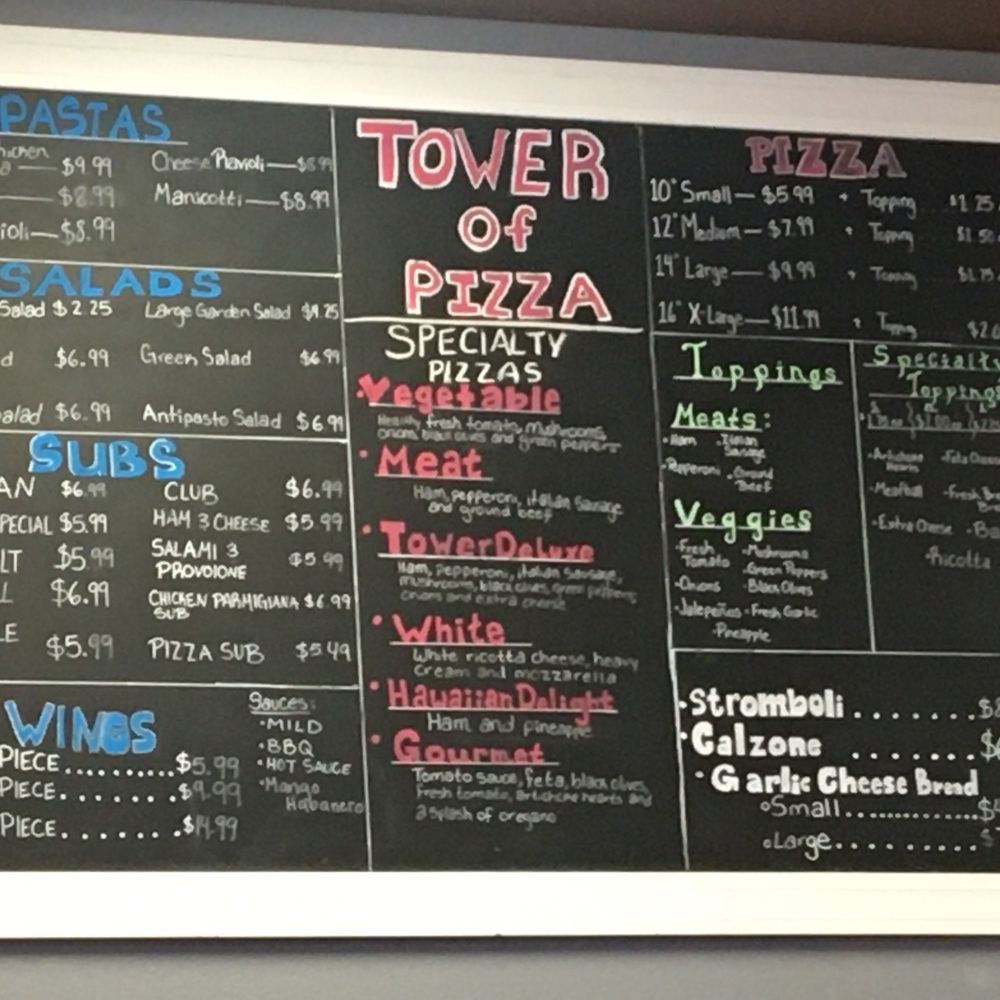 PASTAS
$9.99 Cheese Ravioli—$8.99
$8.99 Manicotti—$8.99
$8.99
SALADS
Salad $2.25 Large Garden Salad $4.25
$6.99 Green Salad $6.99
$6.99 Antipasto Salad $6.99
SUBS
$6.99 CLUB $6.99
$5.99 HAM & CHEESE $5.99
$5.99 SALAMI & PROVOLONE $5.99
$6.99 CHICKEN PARMIGIANA SUB $6.99
$5.99 PIZZA SUB $5.49
WINGS
PIECE..........$5.99
PIECE.......$9.99
PIECE.......$14.99
Sauces:
•MILD
•BBQ
•HOT SAUCE
•Mango
Habanero
TOWER
Of
PIZZA
SPECIALTY
PIZZAS
•Vegetable
Healthy fresh tomato, mushrooms,
onions, black olives and green peppers
•Meat
Ham, pepperoni, italian sausage
and ground beef
•Tower Deluxe
Ham, pepperoni, italian sausage,
mushrooms, black olives, green peppers,
onions and extra cheese
•White
White ricotta cheese, heavy
cream and mozzarella
•Hawaiian Delight
Ham and pineapple
•Gourmet
Tomato sauce, feta, black olives,
fresh tomato, artichoke hearts and
a splash of oregano
PIZZA
10" Small—$5.99 + Topping $1.25
12" Medium—$7.99 + Topping $1.50
14" Large—$9.99 + Topping $1.75
16" X-Large—$11.99 + Topping
Toppings
Meats:
•Ham •Italian
Sausage
•Pepperoni •Ground
Beef
Veggies
•Fresh •Mushrooms
Tomato •Green Peppers
•Onions •Black Olives
•Jalepeños •Fresh Garlic
•Pineapple
Specialty
Toppings
•Artichoke •Feta Cheese
Hearts
•Meatball •Fresh
•Extra Cheese
•Ricotta
•Stromboli.......
•Calzone.......
•Garlic Cheese Bread
Small..............
Large..........